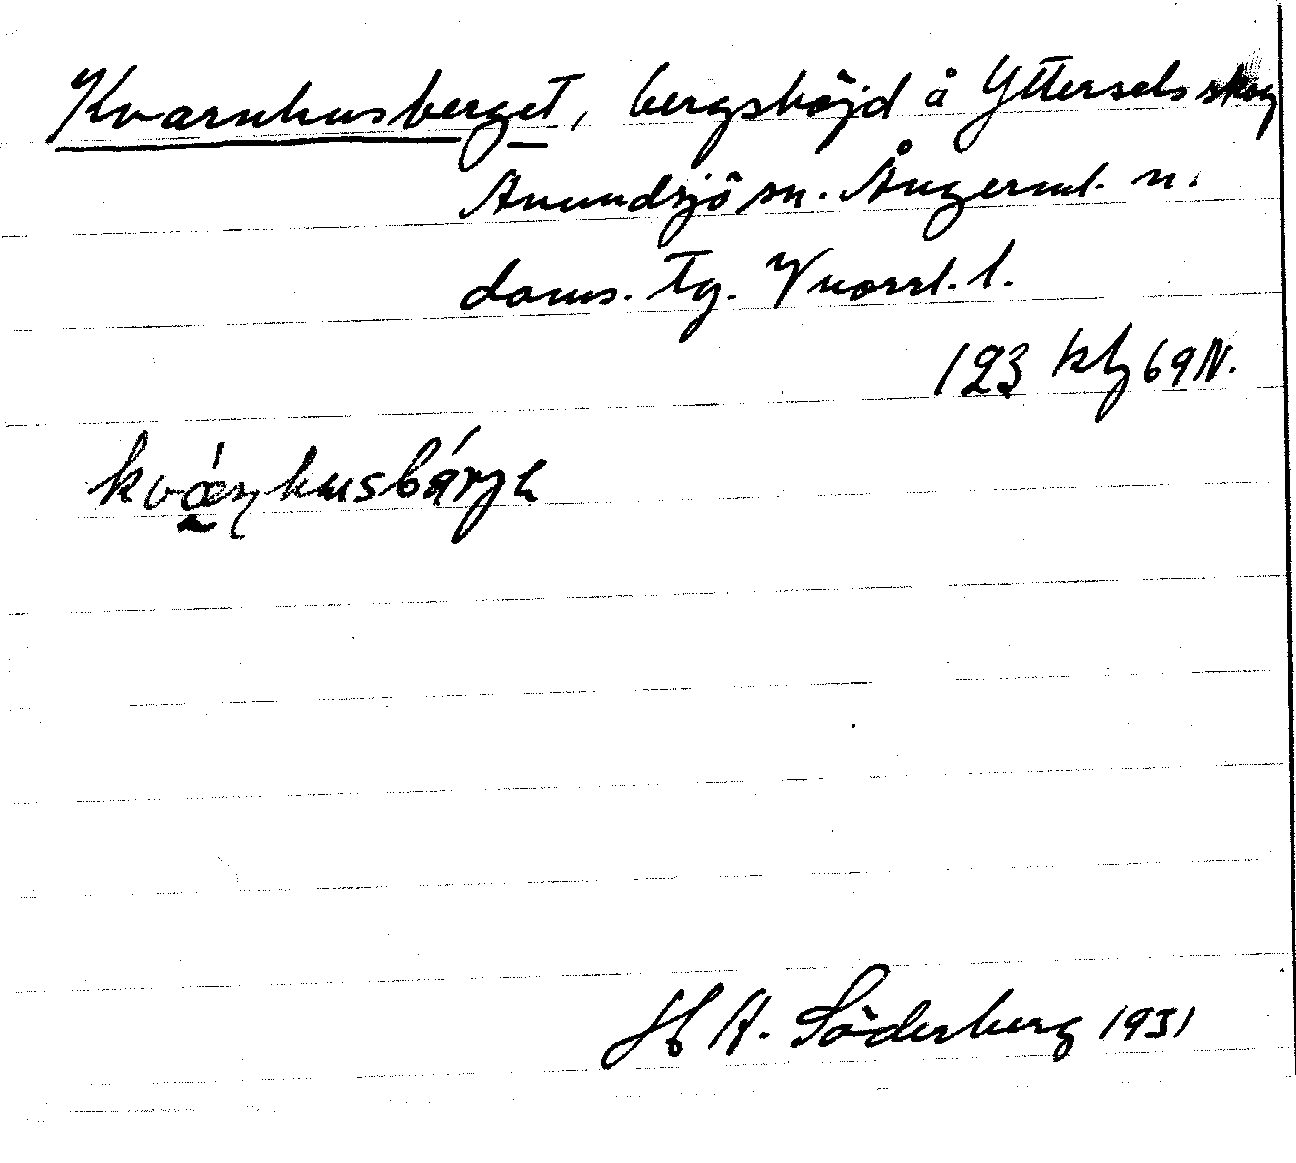 Kvarnhusberget, bergshöjd å Yttersels skog
Anundsjö sn. Ångerml. n.
doms. Tg. Vnorrl. l.
123 kbg 69 N.
kvæ̀ɳhusbárjə
H A. Söderberg 1931